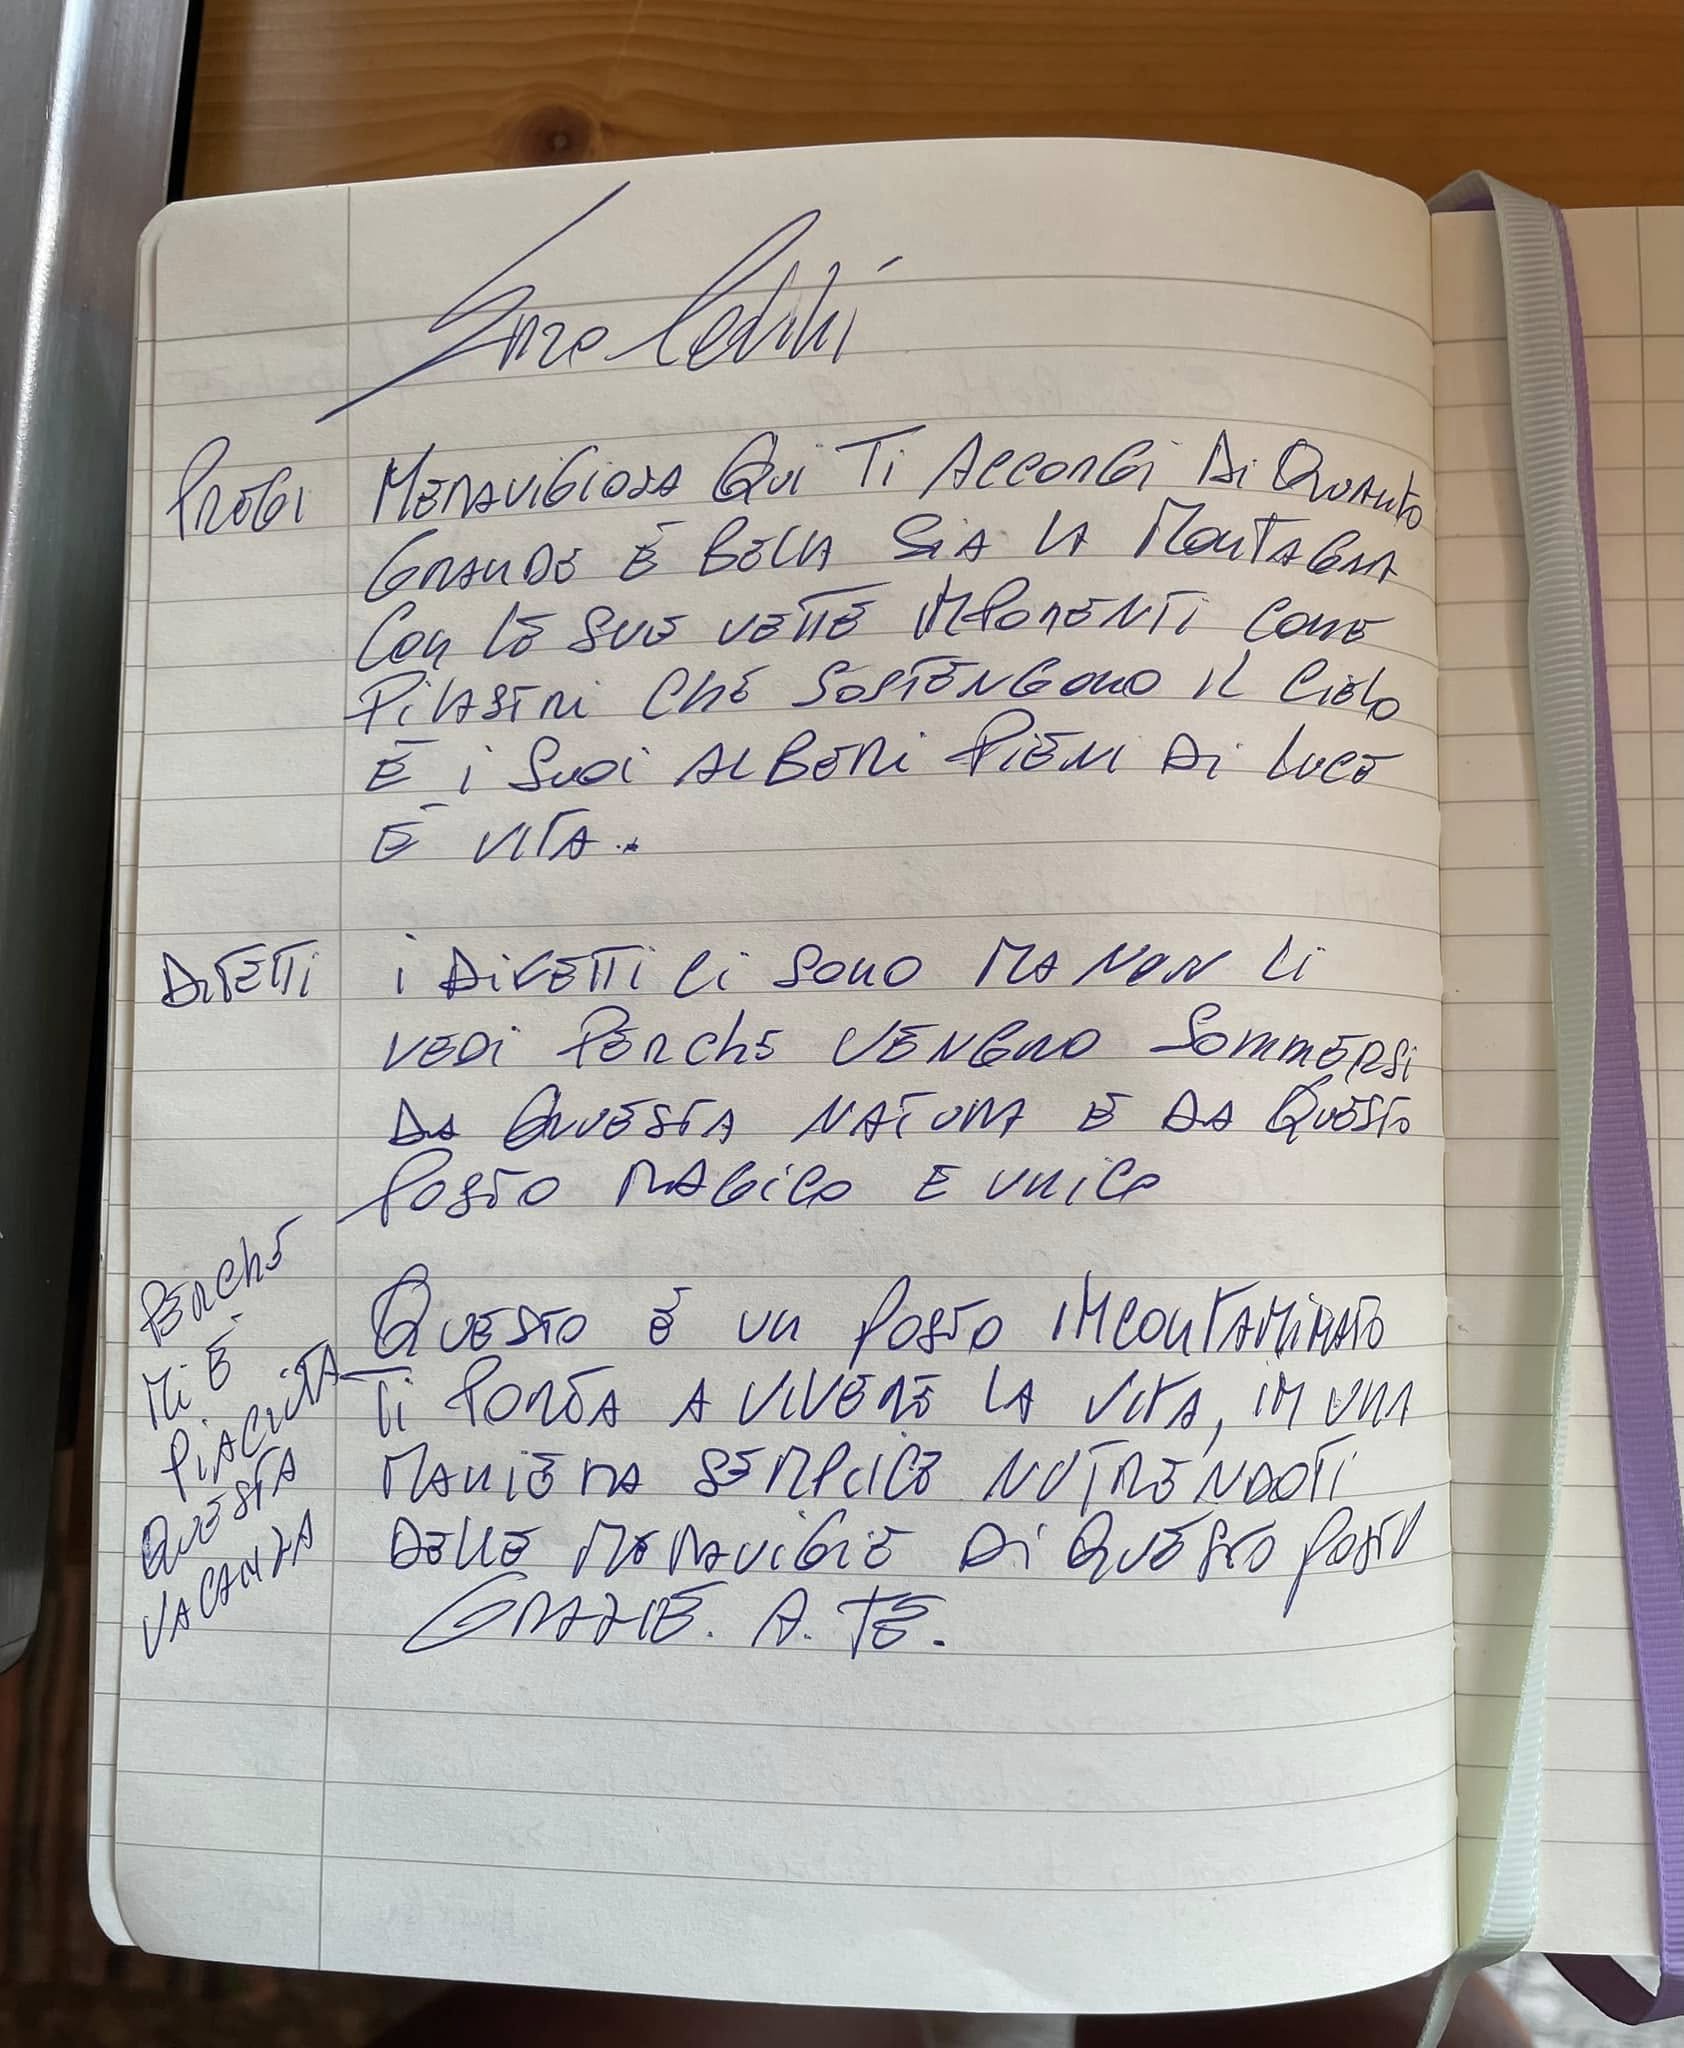 Enzo
PREGI
MERAVIGIOSA QUI TI ACCORGI DI QUANTO
GRANDE È BELLA SIA LA MONTAGNA
CON LE SUE VETTE IMPONENTI COME
PILASTRI CHE SOSTENGONO IL CIELO
E I SUOI ALBERI PIENI DI LUCE
E VITA..
DIFETTI
I DIFETTI CI SONO MA NON LI
VEDI PERCHE VENGNO SOMMERSI
DA QUESTA NATURA E DA QUESTO
POSTO MAGICO E UNICO
PERCHE
MI È
PIACIUTA
QUESTA
VACANZA
QUESTO È UN POSTO INCONTAMINATO
TI PORTA A VIVERE LA VITA, IN UNA
MANIERA SEMPLICE NUTRENDOTI
DELLE MERAVIGIE DI QUESTO POSTO
GRAZIE. A. TE.